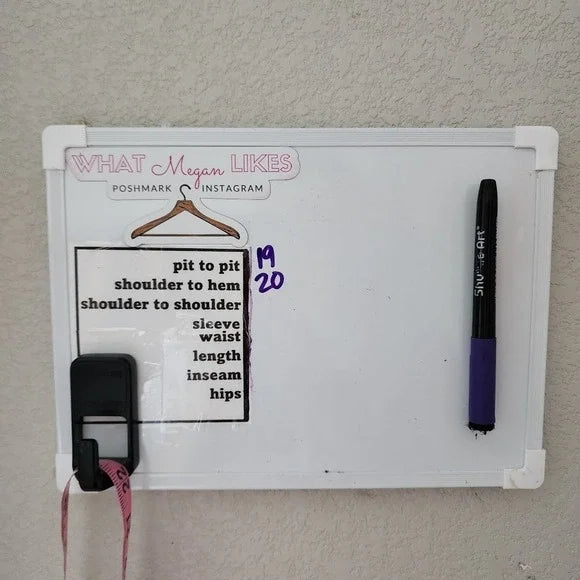 WHAT Megan LIKES
POSHMARK INSTAGRAM
pit to pit 19
shoulder to hem 20
shoulder to shoulder
sleeve
waist
length
inseam
hips